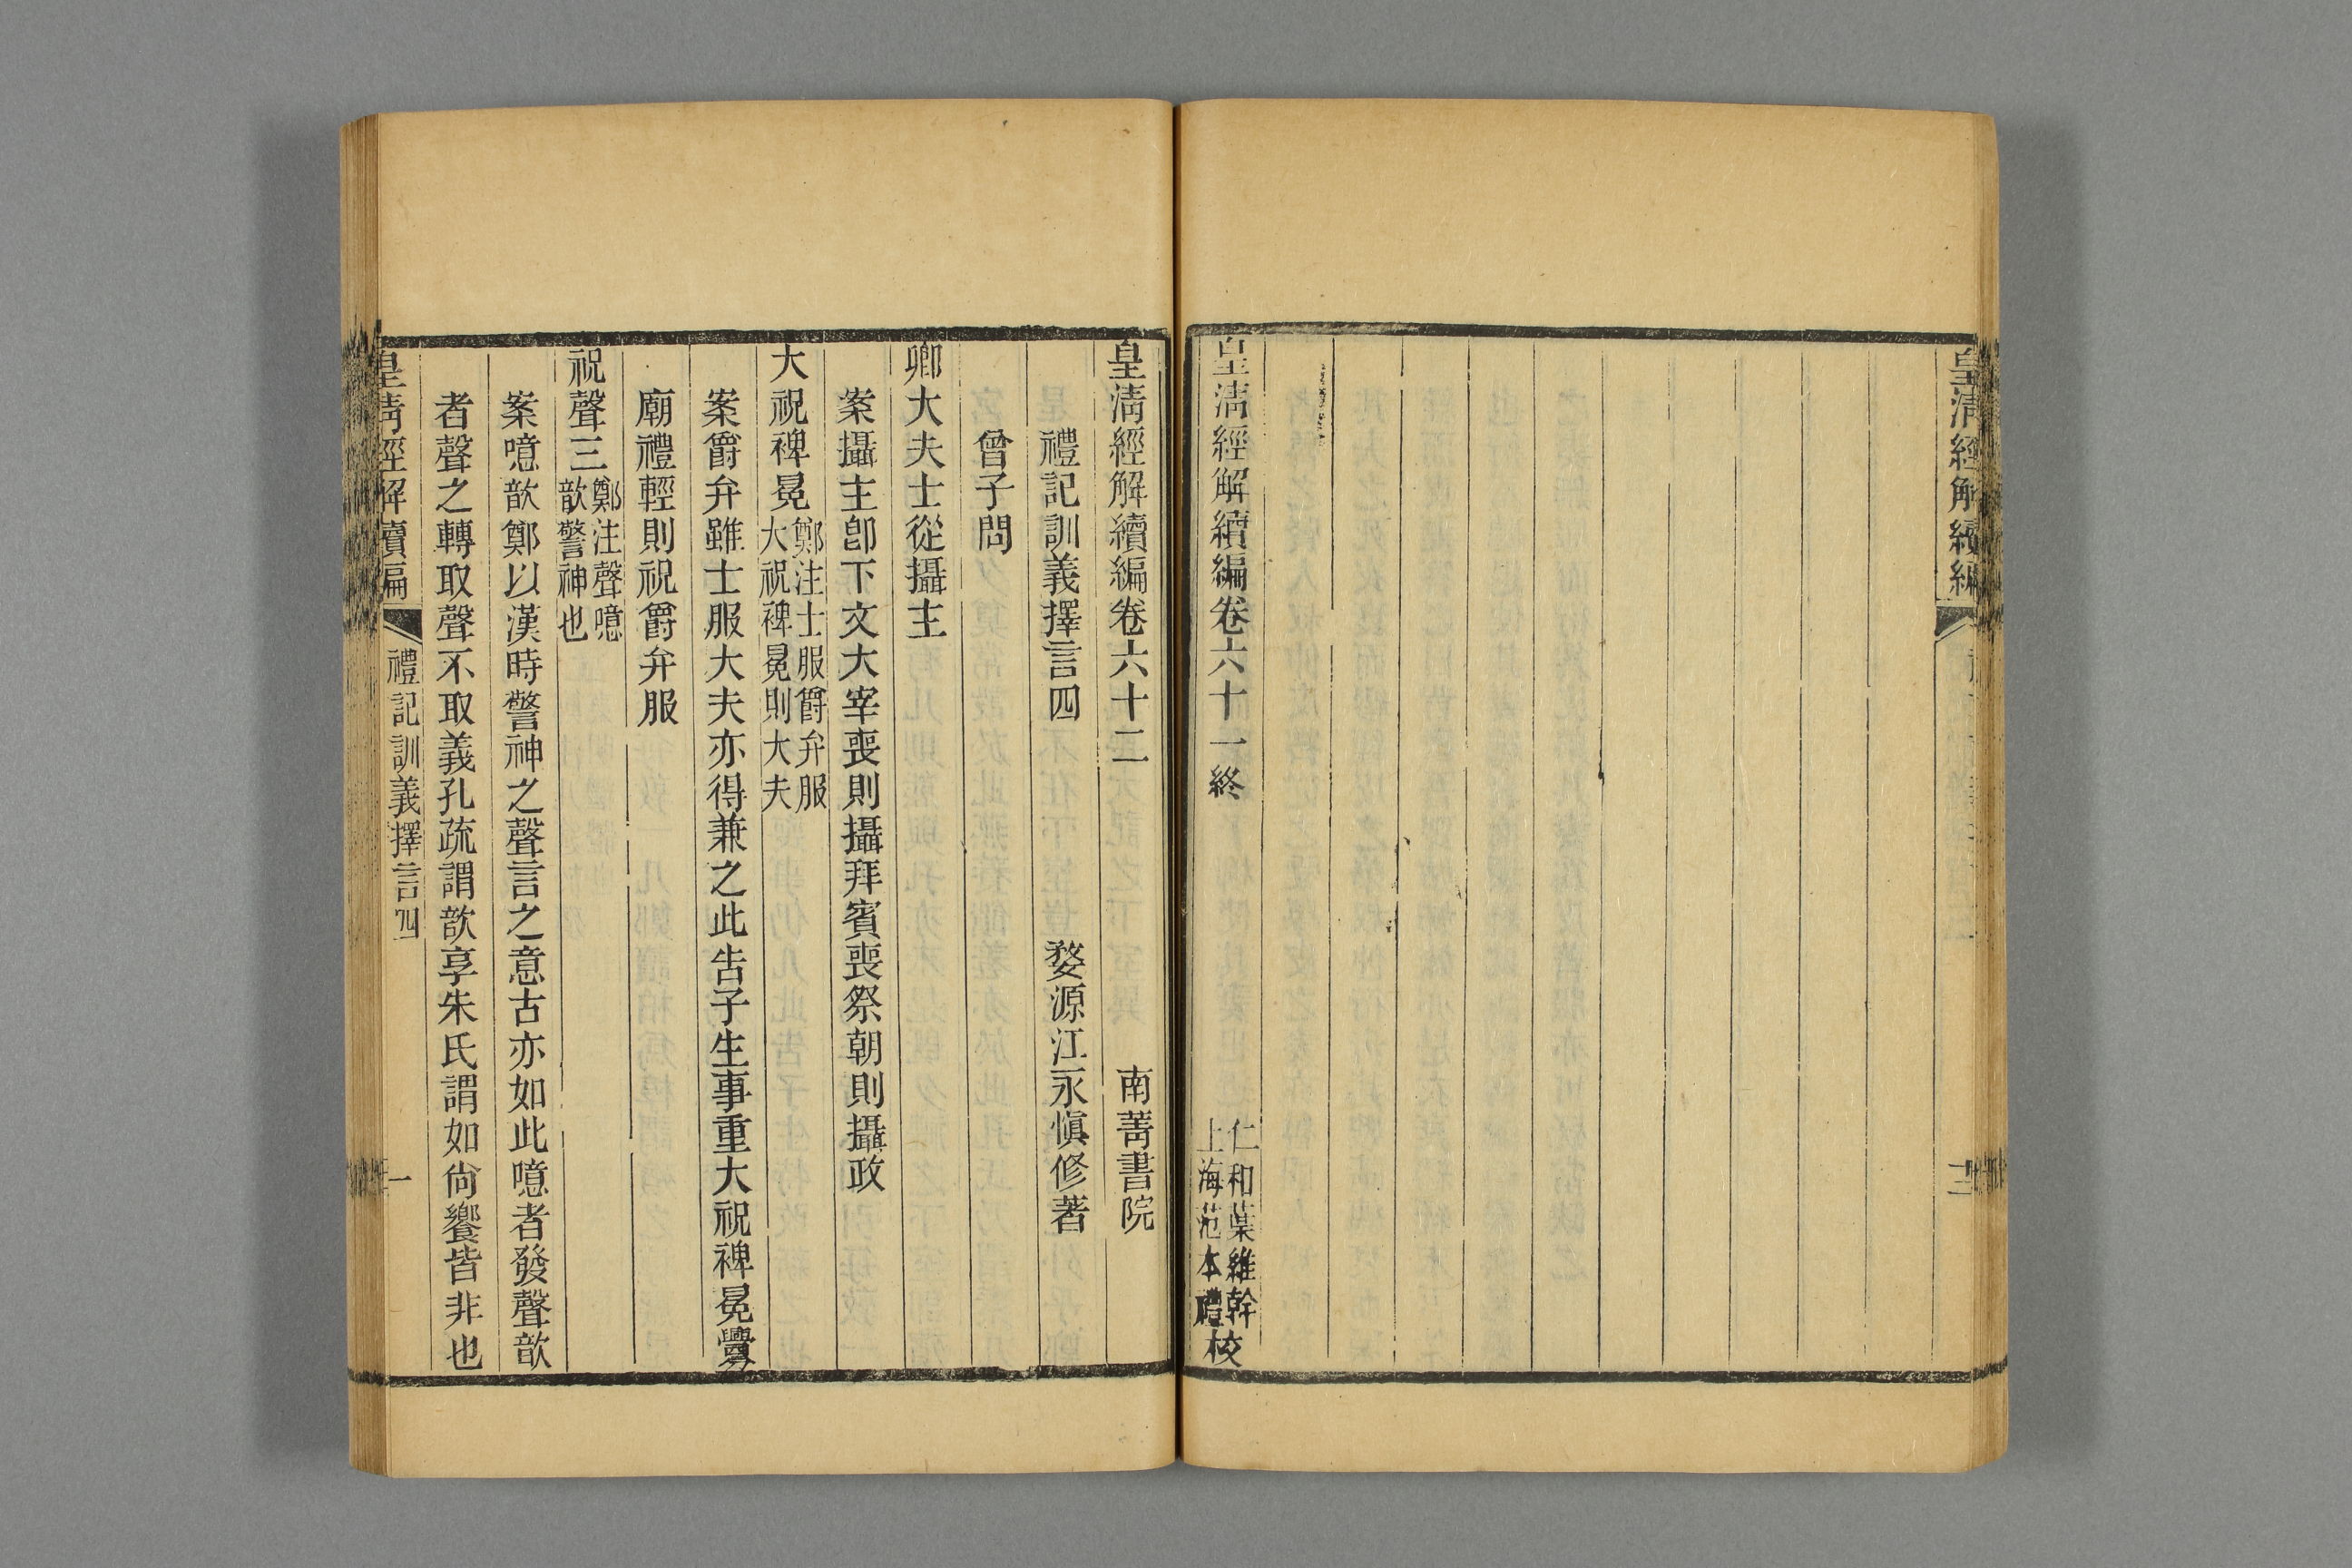 皇清經解續編
皇清經解續編卷六十一終
仁和葉維幹
上海范本禮校
皇清經解續編卷六十二 南菁書院
禮記訓義擇言四 婺源江永愼修著
曾子問
卿大夫士從攝主
案攝主卽下文大宰喪則攝拜賓喪祭朝則攝政
大祝裨冕鄭注士服爵弁服大祝裨冕則大夫
案爵弁雖士服大夫亦得兼之此告子生事重大祝裨冕釁
廟禮輕則祝爵弁服
祝聲三鄭注聲噫歆警神也
案噫歆鄭以漢時警神之聲言之意古亦如此噫者發聲歆
者聲之轉取聲不取義孔疏謂歆享朱氏謂如尙饗皆非也
皇清經解續編 禮記訓義擇言四 一